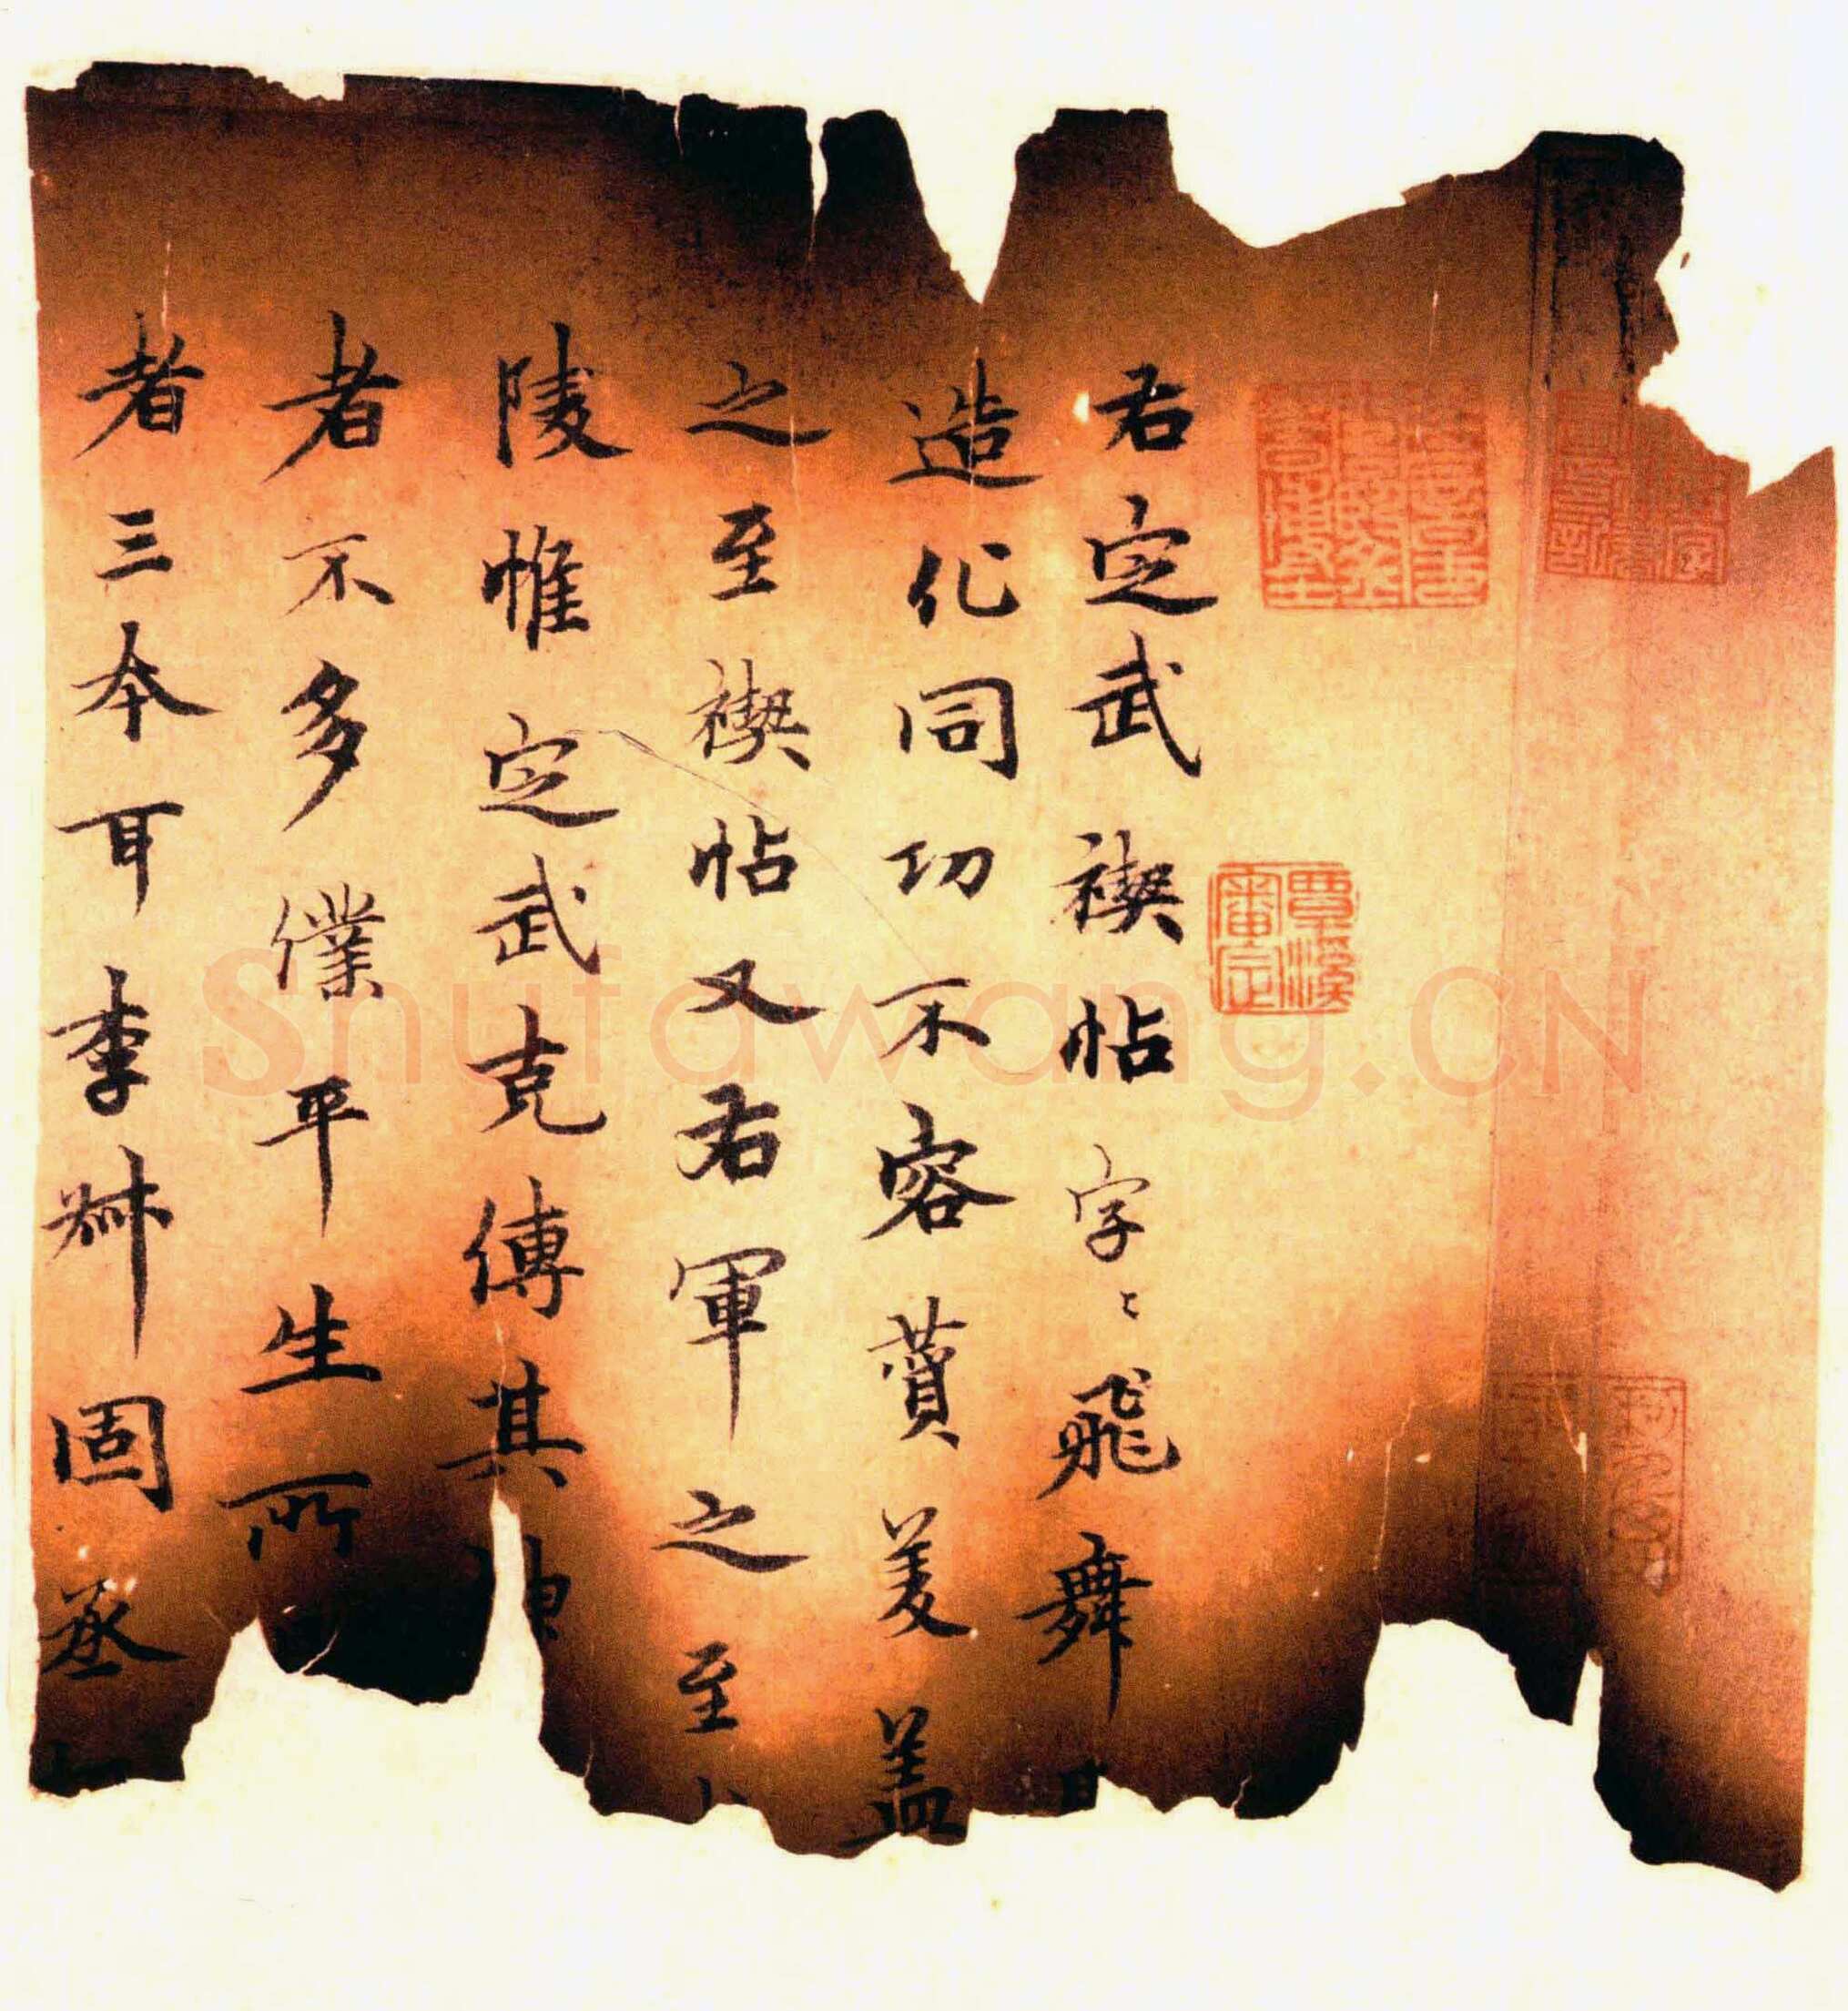 右定武禊帖字〻飛舞
造化同功不容賛美盖
之至禊帖又右軍之至
陵惟定武克傳其神
者不多僕平生所
者三本耳李叔固丞
覃溪
審定
Shufawang.CN